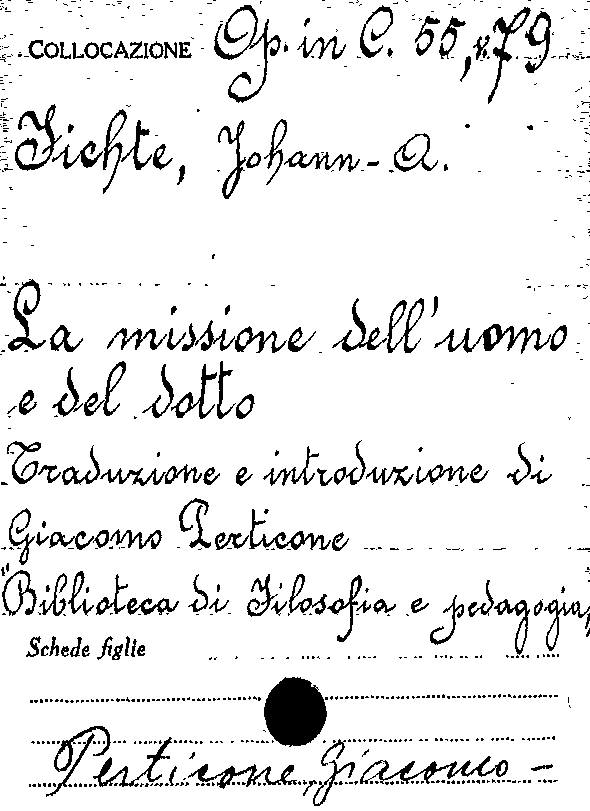 COLLOCAZIONE Op. in C. 55, 79
Fichte, Johann-A.
La missione dell'uomo
e del dotto
Traduzione e introduzione di
Giacomo Perticone
"Biblioteca di Filosofia e pedagogia,
Schede figlie
Perticone, Giacomo -